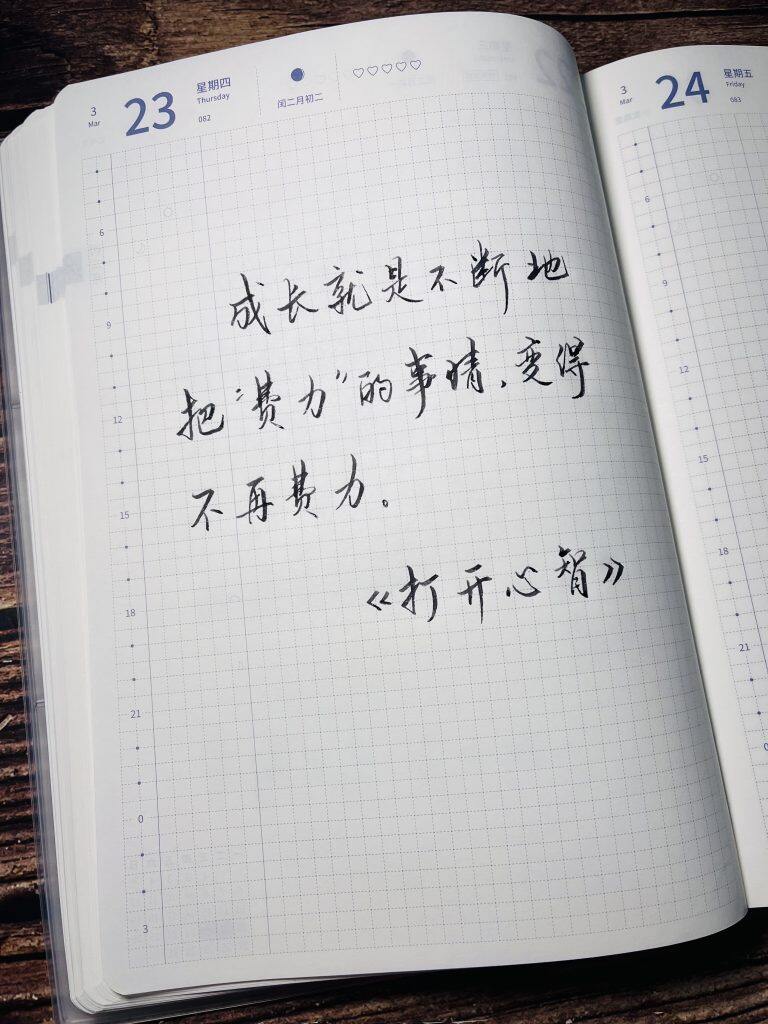 3 Mar 23 星期四 Thursday 082 闰二月初二
成长就是不断地
把“费力”的事情，变得
不再费力。
《打开心智》
6
9
12
15
18
21
0
3
3 Mar 24 星期五 Friday 083
6
9
12
15
18
21